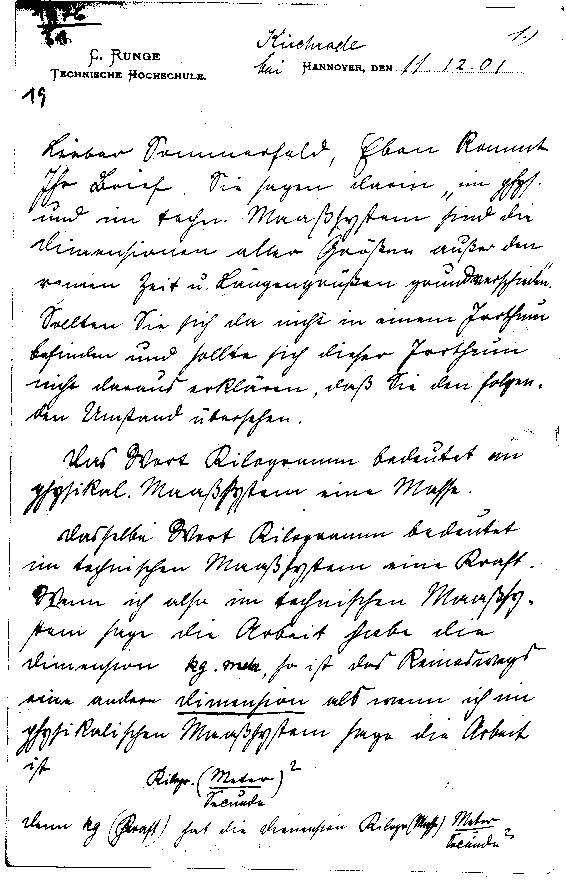 C. RUNGE
TECHNISCHE HOCHSCHULE.
Kirchrode
bei HANNOVER, DEN 11 12.01
1.)
19
Lieber Sommerfeld, Eben kommt
Ihr Brief. Sie sagen darin „im phys.
und im techn. Maaßsystem sind die
Dimensionen aller Größen außer den
reinen Zeit u. Längengrößen grundverschieden".
Sollten Sie sich da nicht in einem Irrthum
befinden und sollte sich dieser Irrthum
nicht daraus erklären, daß Sie den folgen-
den Umstand übersehen.
Das Wort Kilogramm bedeutet im
physikal. Maaßsystem eine Masse.
Dasselbe Wort Kilogramm bedeutet
im technischen Maaßsystem eine Kraft.
Wenn ich also im technischen Maaßsy-
stem sage die Arbeit habe die
Dimension kg. met, so ist das keineswegs
eine andere Dimension als wenn ich im
physikalischen Maaßsystem sage die Arbeit
ist
Kilogr. (Meter/Secunde)²
denn kg (Kraft) hat die Dimension Kilogr (Masse) Meter/Secunde²